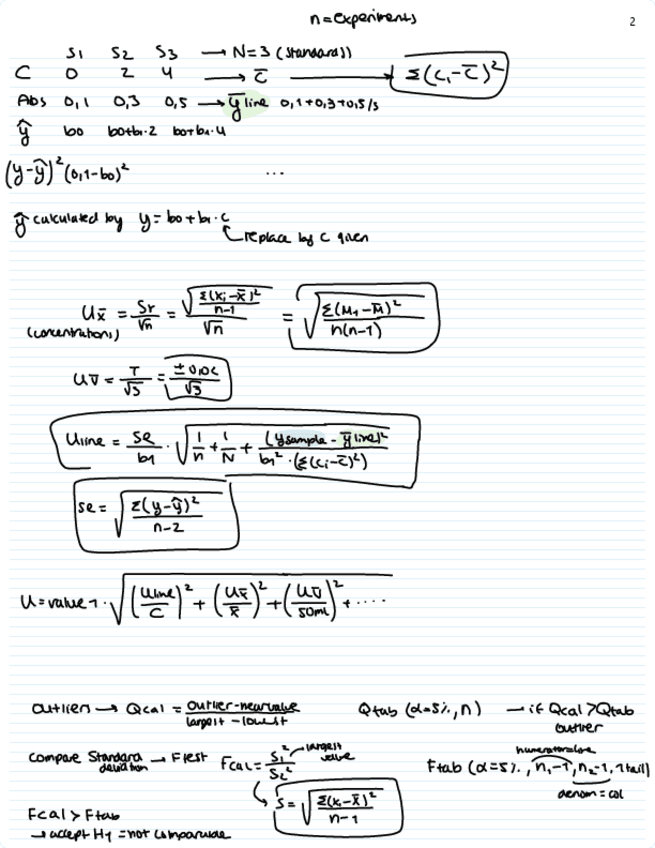 n = experiments
2
S1 S2 S3 → N=3 (standards)
C 0 2 4 → C̅ → Σ(Ci-C̅)²
Abs 0,1 0,3 0,5 → y̅ line 0,1+0,3+0,5/3
ŷ b0 b0+b1·2 b0+b1·4
(y-ŷ)² (0,1-b0)² ...
ŷ calculated by y = b0 + b1·C
replace by C given
Ux̅ = Sr/√n = √(Σ(xi-x̅)²/n-1)/√n = √(Σ(M1-M̅)²/n(n-1))
(concentrations)
Uv̅ = T/√3 = ±0,06/√3
Uline = Se/b1 · √(1/n + 1/N + (ysample - y̅line)²/b1²·(Σ(Ci-C̅)²))
se = √(Σ(y-ŷ)²/n-2)
U = value · √((Uline/C)² + (Ux̅/x̅)² + (Uv̅/50mL)² + ....
Outliers → Qcal = Outlier-near value/largest-lowest Qtab (α=5%, n) → if Qcal > Qtab
outlier
compare Standard deviation → F test Fcal = S1²/S2² largest value Ftab (α=5%, n1-1, n2-1, 1 tail)
numerator=line
denom = col
S = √(Σ(xi-x̅)²/n-1)
Fcal > Ftab
→ accept H1 = not comparable